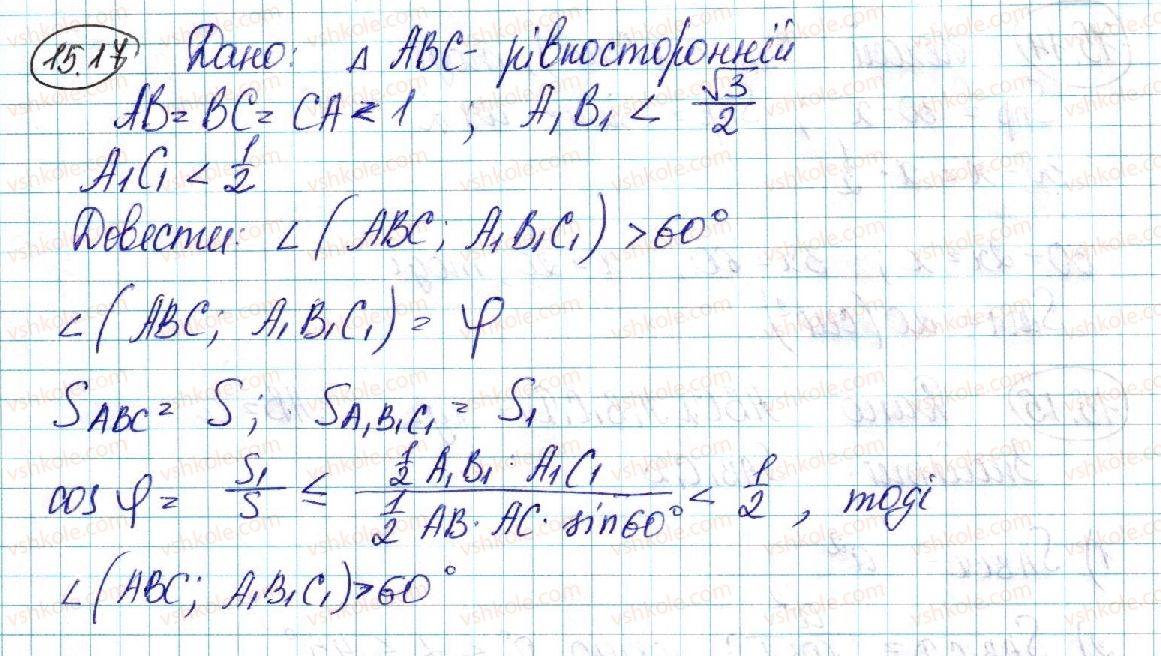 15.17 Дано: △ ABC - рівносторонній
AB = BC = CA = 1 ; A₁B₁ < √3/2
A₁C₁ < 1/2
Довести: ∠(ABC; A₁B₁C₁) > 60°
∠(ABC; A₁B₁C₁) = φ
S_ABC = S; S_A₁B₁C₁ = S₁
cos φ = S₁/S ≤ (1/2 A₁B₁ · A₁C₁)/(1/2 AB · AC · sin 60°) < 1/2, тоді
∠(ABC; A₁B₁C₁) > 60°